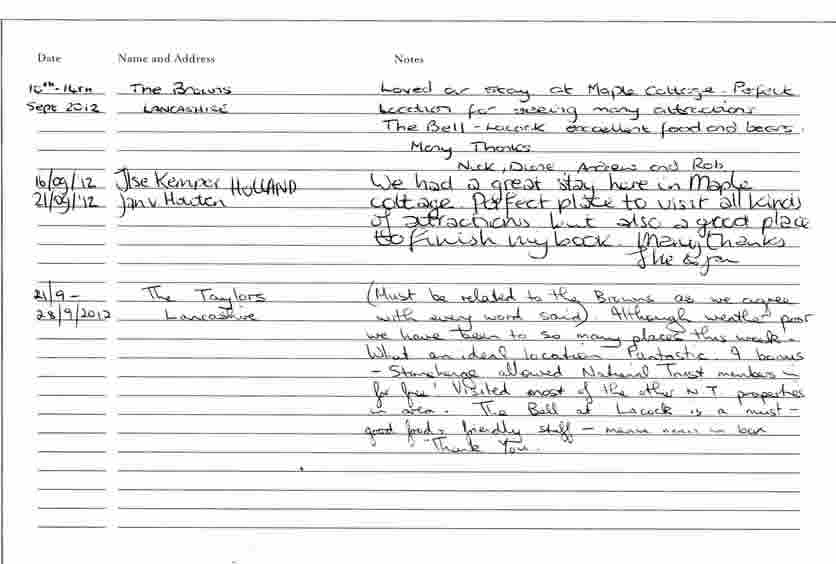 Date Name and Address Notes
10th-14th The Browns Loved our stay at Maple Cottage - Perfect
Sept 2012 LANCASHIRE Location for seeing many attractions
The Bell - Lacock excellent food and beers.
Many Thanks
Nick, Diane, Andrew and Rob
16/09/12 Ilse Kemper HOLLAND We had a great stay here in Maple
21/09/'12 Jan v. Houten cottage. Perfect place to visit all kinds
of attractions but also a good place
to finish my book. Many thanks
Ilse & Jan
21/9 - The Taylors (Must be related to the Browns as we agree
28/9/2012 Lancashire with every word said). Although weather poor
we have been to so many places this week.
What an ideal location. Fantastic. A bonus
- Stonehenge allowed National Trust members in
for free! Visited most of the other N.T. properties
in area. The Bell at Lacock is a must -
good food, friendly staff - in bar
Thank You.